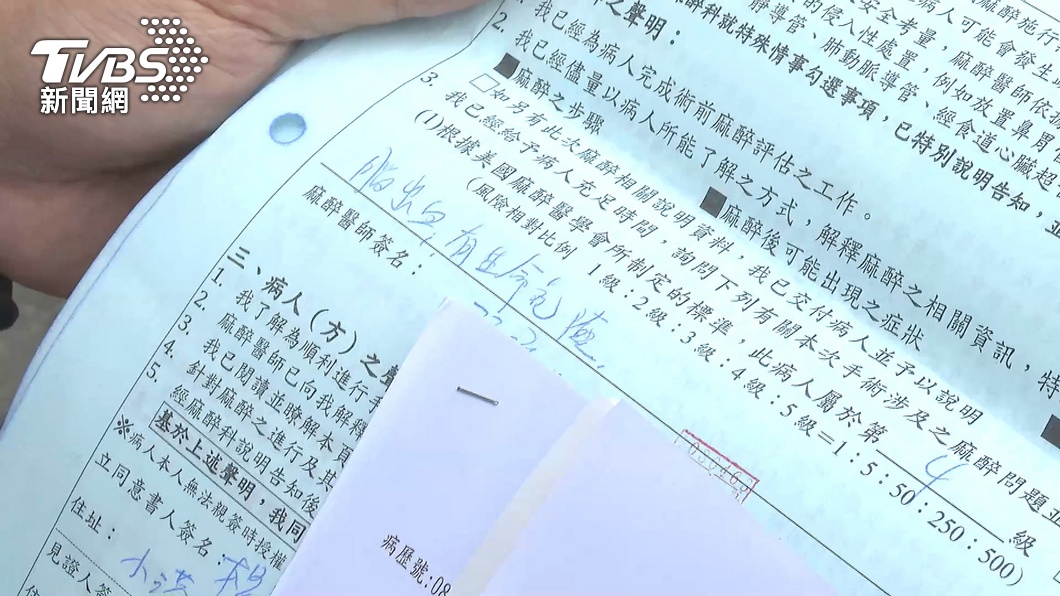 TVBS
新聞網
病人可能會發生
安全考量，麻醉醫師依據
的侵入性處置，例如放置鼻胃
靜導管、肺動脈導管、經食道心臟超
麻醉科就特殊情事勾選事項，已特別說明告知，並
之聲明：
1. 我已經為病人完成術前麻醉評估之工作。
2. 我已經儘量以病人所能了解之方式，解釋麻醉之相關資訊，特
■麻醉之步驟 ■麻醉後可能出現之症狀
□如另有此次麻醉相關說明資料，我已交付病人並予以說明
3. 我已經給予病人充足時間，詢問下列有關本次手術涉及之麻醉問題並
(1)根據美國麻醉醫學會所制定的標準，此病人屬於第 4 級
(風險相對比例 1級：2級：3級：4級：5級＝1：5：50：250：500)
腦出血，有生命危險
麻醉醫師簽名：
三、病人（方）之聲
1. 我了解為順利進行手
2. 麻醉醫師已向我解釋
3. 我已閱讀並瞭解本頁
4. 針對麻醉之進行及其
5. 經麻醉科說明告知後
基於上述聲明，我同
※病人本人無法親簽時授權
立同意書人簽名：
住址：
見證人簽
病歷號:08